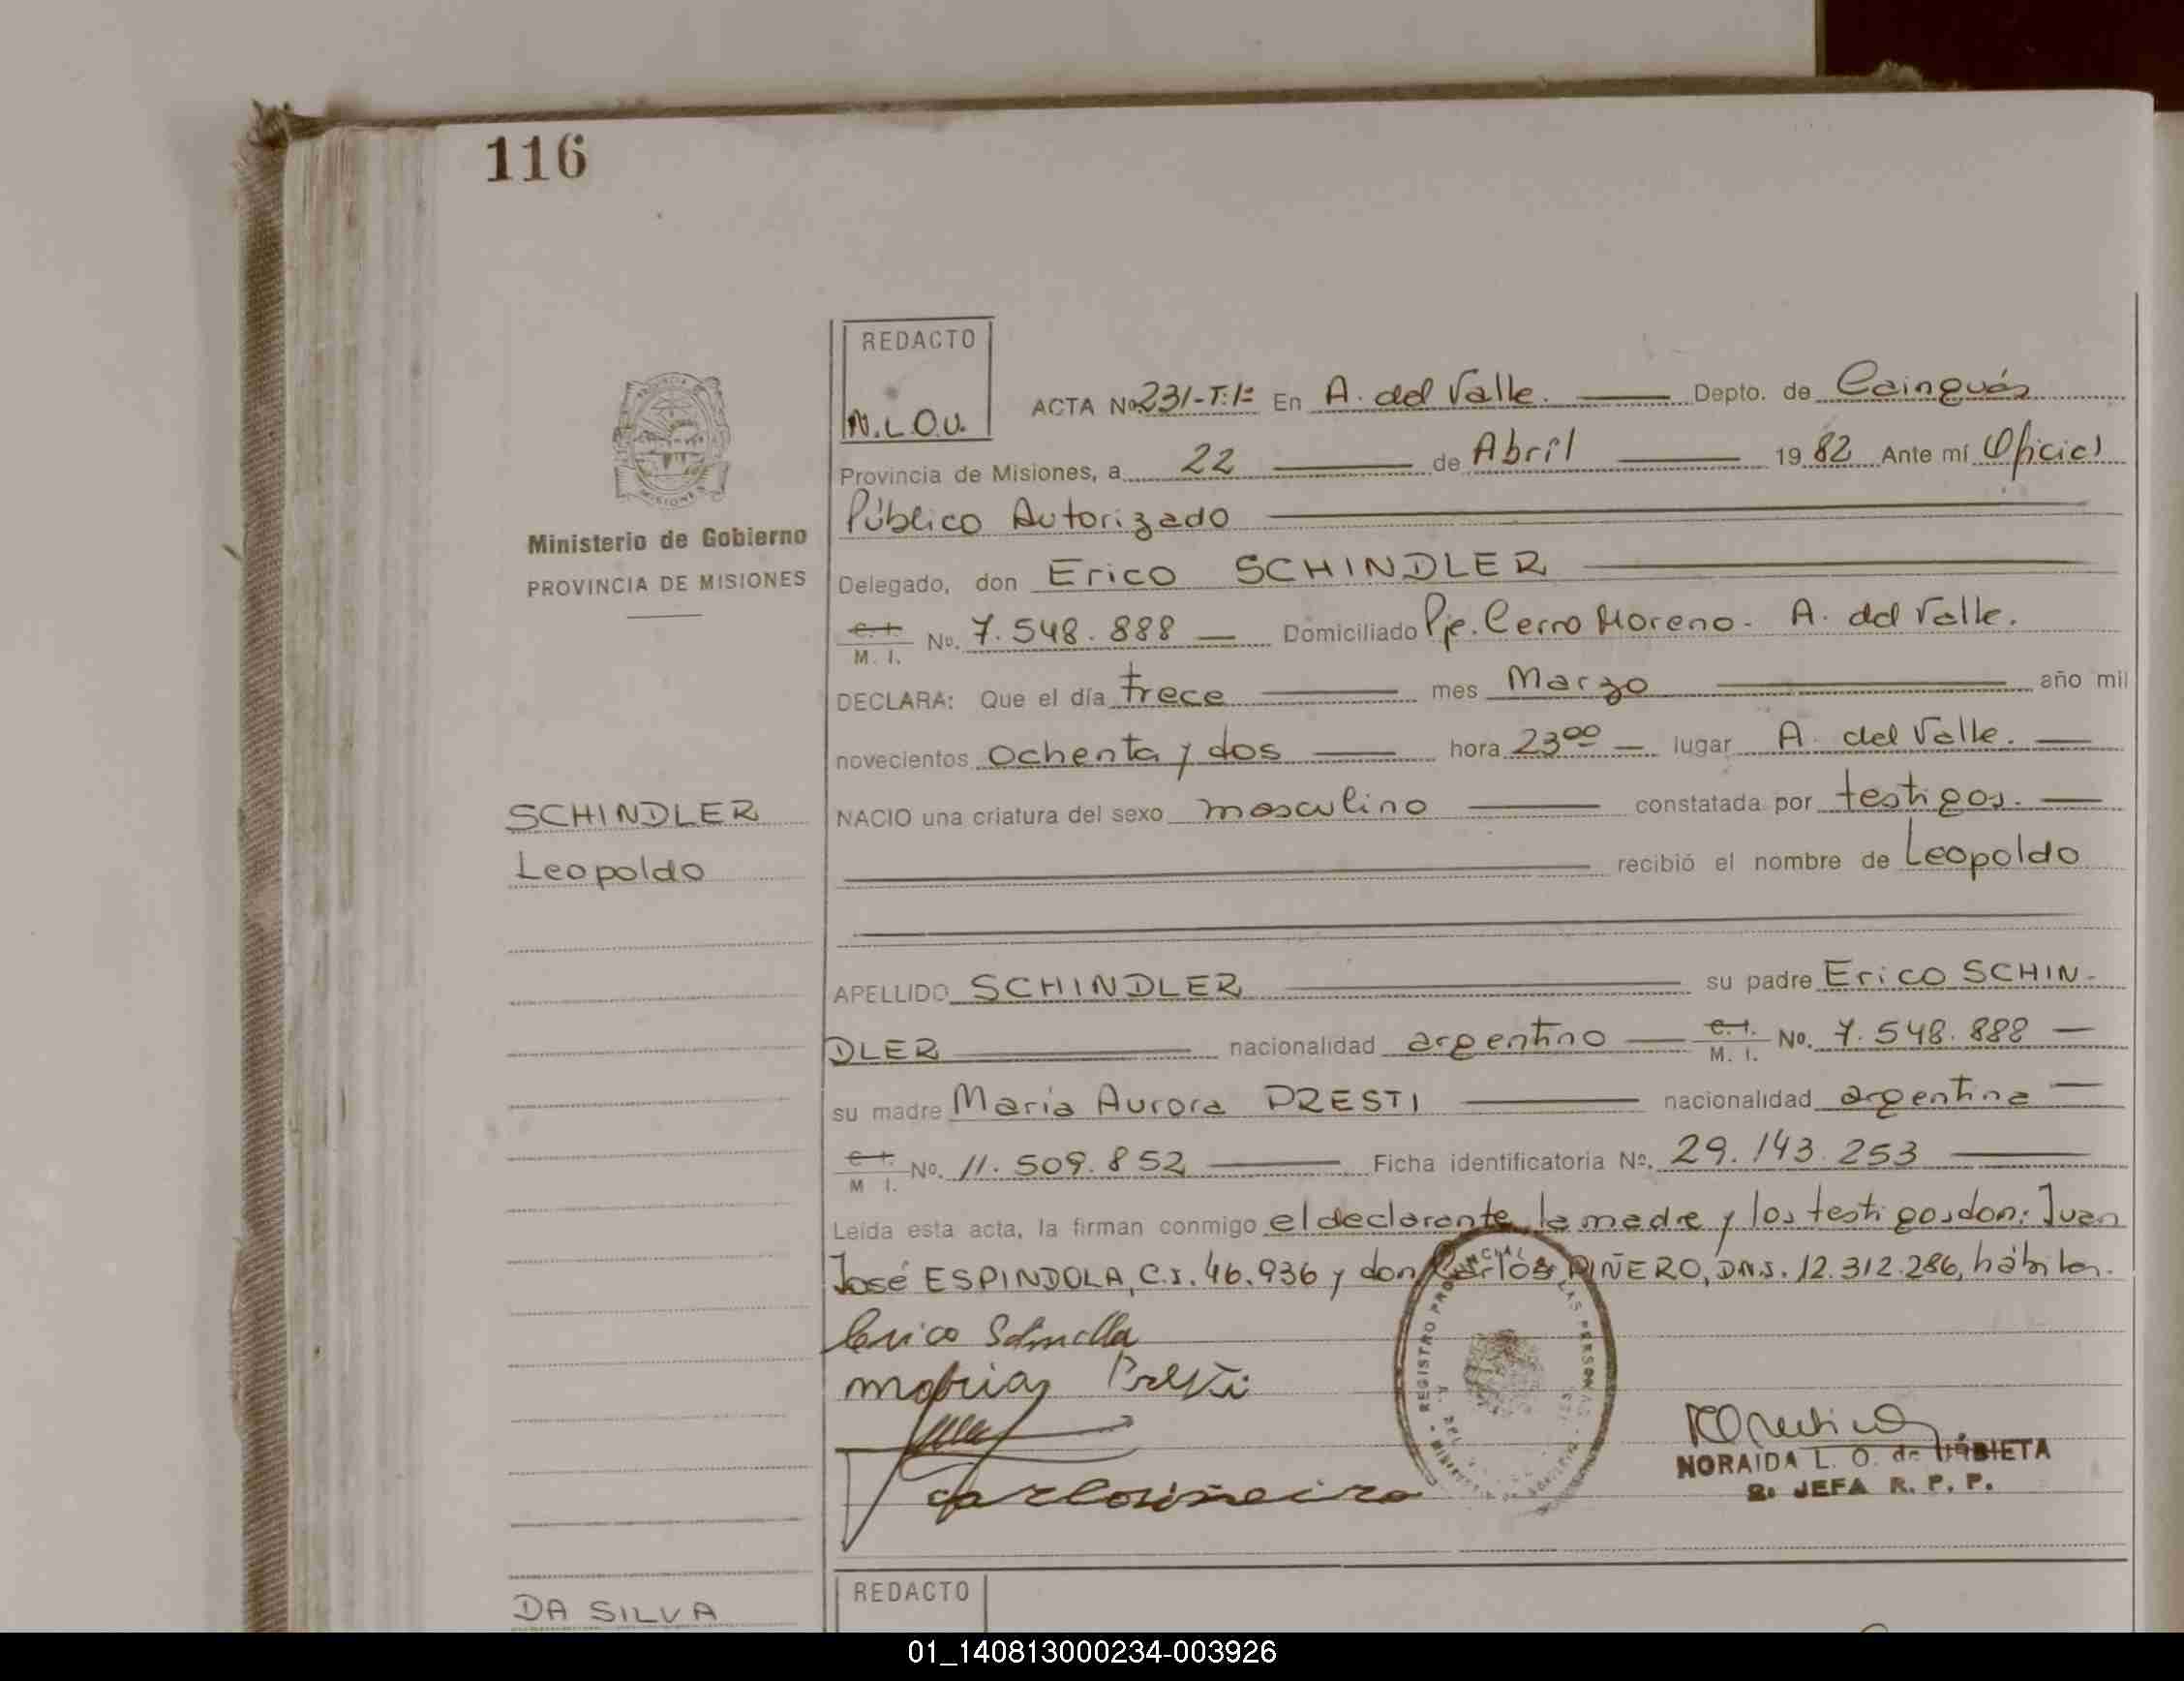 116
REDACTO
N.L.O.U.
ACTA No 231-T:1º En A. del Valle. Depto. de Cainguás
Provincia de Misiones, a 22 de Abril 1982 Ante mí Oficial
Público Autorizado
Ministerio de Gobierno
PROVINCIA DE MISIONES
Delegado, don Erico SCHINDLER
C. I. M. I. No. 7.548.888 Domiciliado Pje. Cerro Moreno - A. del Valle.
DECLARA: Que el día trece mes Marzo año mil
novecientos ochenta y dos hora 23oo lugar A. del Valle.
SCHINDLER
Leopoldo
NACIO una criatura del sexo masculino constatada por testigos.
recibió el nombre de Leopoldo
APELLIDO SCHINDLER su padre Erico SCHIN-
DLER nacionalidad argentino C. I. M. I. No. 7.548.888
su madre Maria Aurora PRESTI nacionalidad argentina
C. I. M I. No. 11.509.852 Ficha identificatoria Nº. 29.143.253
Leída esta acta, la firman conmigo el declarante, la madre y los testigos don: Juan
José ESPINDOLA, C.I. 46.936 y don Carlos PIÑERO, DNI. 12.312.286, hábiles.
Erico
maria Presti
REGISTRO PROVINCIAL DE LAS PERSONAS
NORAIDA L. O. de URBIETA
2ª JEFA R. P. P.
DA SILVA
REDACTO
01_140813000234-003926